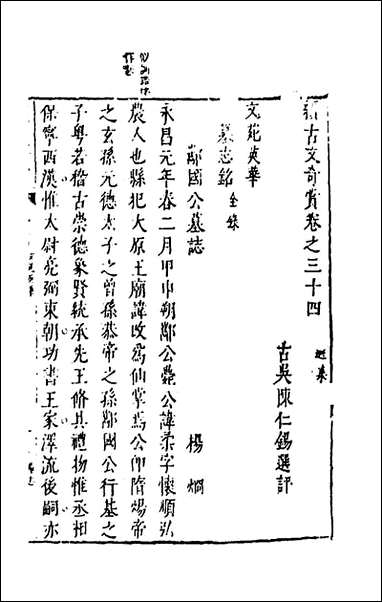 續古文奇賞卷之三十四
古吳陳仁錫選評
文苑英華
墓志銘 全錄
鄰國公墓誌 楊烱
永昌元年春二月甲申朔鄰公薨公諱柔字懷順弘
農人也縣犯大原王廟諱改爲仙掌焉公卽隋煬帝
之玄孫元德太子之曾孫恭帝之孫鄰國公行基之
子粤若稽古崇德象賢統承先王脩其禮物惟丞相
保寧西漢惟太尉亮弼東朝功書王家澤流後嗣亦